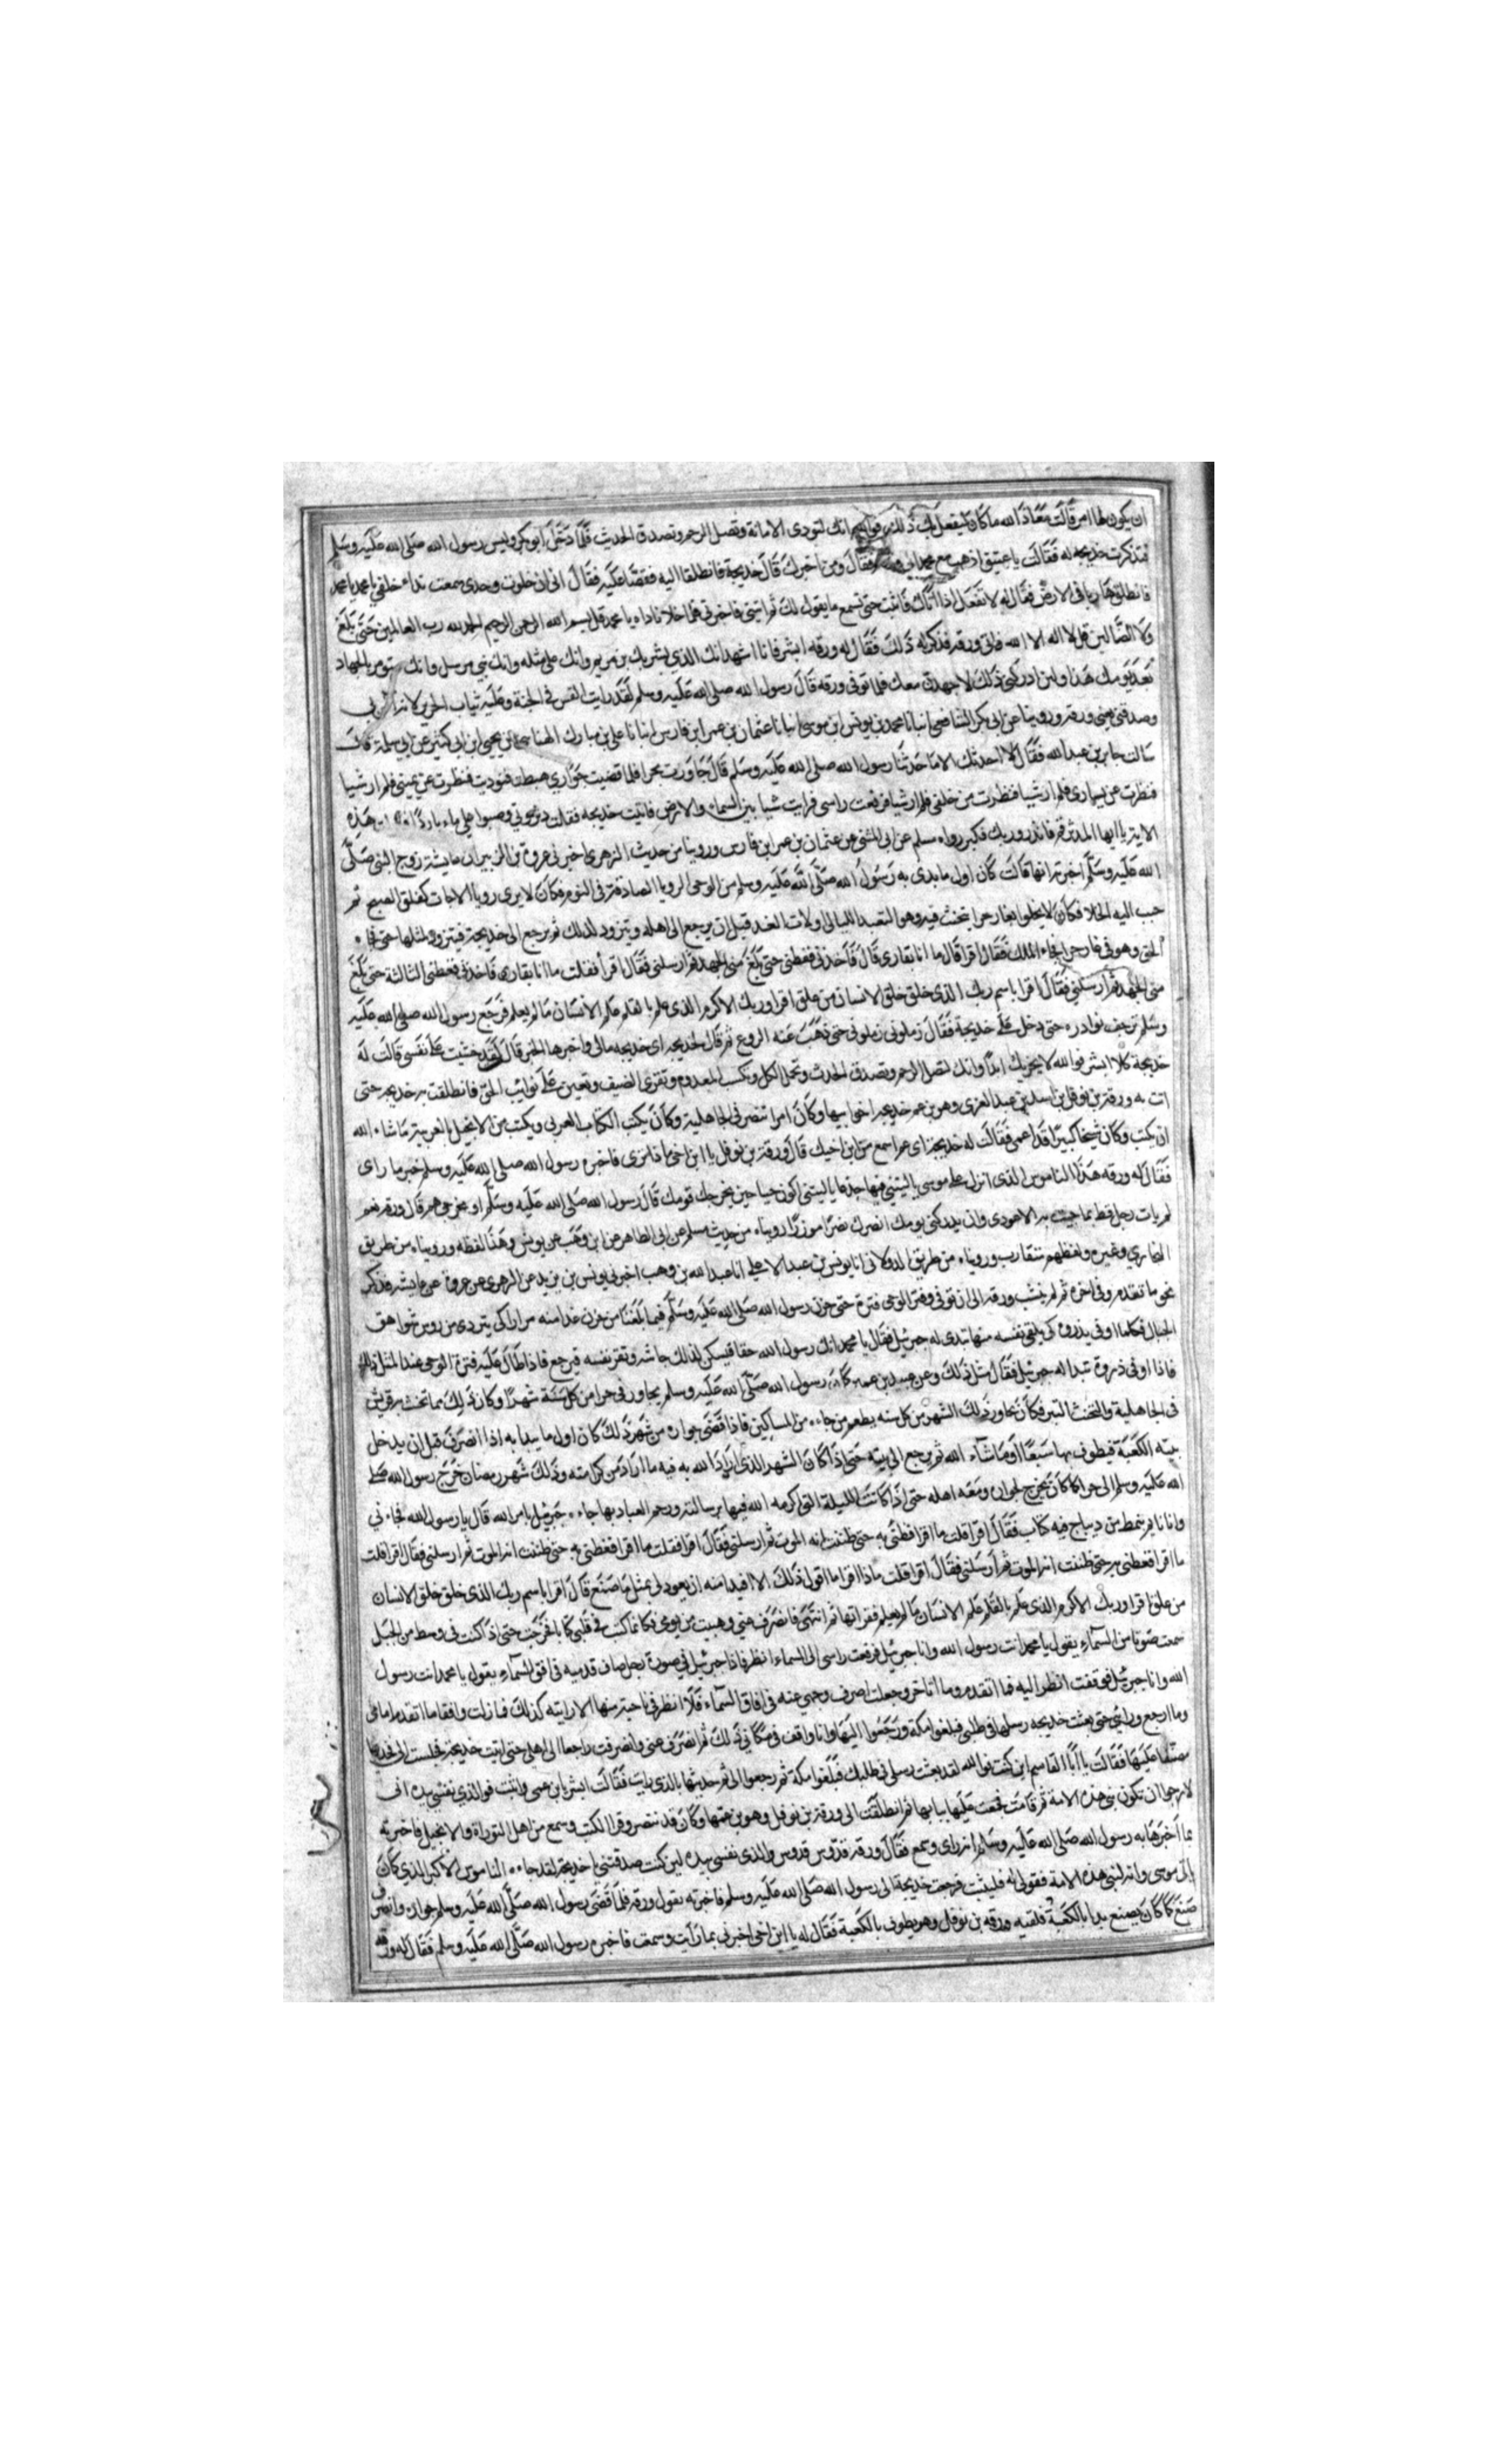 ان يكون هذا امر قالت معاذ الله ما كان الله ليفعل بك ذلك فوالله انك لتودى الامانة وتصل الرحم وتصدق الحديث فلما دخل ابو بكر وليس رسول الله صلى الله عليه وسلم
فذكرت خديجه له فقالت يا عتيق اذهب مع محمد الى ورقة فقال ومن اخبرك قال خديجة فانطلقا اليه فقصا عليه فقال انى اذا خلوت وحدى سمعت نداء خلفى يا محمد يا محمد
فانطلق هاربا فى الارض فقال له لا تفعل اذا اتاك فاثبت حتى تسمع ما يقول لك ثم ايتنى فاخبرنى فلما خلا ناداه يا محمد قل بسم الله الرحمن الرحيم الحمد لله رب العالمين حتى بلغ
ولا الضالين قل لا اله الا الله فاتى ورقه فذكر له ذلك فقال له ورقه ابشر فانا اشهد انك الذى بشر بك بن مريم وانك على مثله وانك نبى مرسل وانك ستومر بالجهاد
بعد يومك هذا ولئن ادركنى ذلك لاجاهدن معك فلما توفى ورقه قال رسول الله صلى الله عليه وسلم لقد رايت القس فى الجنة وعليه ثياب الحرير لانه امن بى
وصدقنى يعنى ورقه وروينا عن ابى بكر الشافعى انبانا محمد بن يونس ابن موسى انبانا عثمان بن عمر ابن فارس انبانا على بن مبارك الهنائى عن يحيى ابن ابى كثير عن ابى سلمة قال
سالت جابر بن عبد الله فقال لا احدثك الا ما حدثنا رسول الله صلى الله عليه وسلم قال جاورت بحرا فلما قضيت جوارى هبطت فنوديت فنظرت عن يمينى فلم ار شيا
فنظرت عن يسارى فلم ار شيا فنظرت من خلفى فلم ار شيا فرفعت راسى فرايت شيا بين السماء والارض فاتيت خديجه فقلت دثرونى وصبوا على ماء باردا هذه
الاية يا ايها المدثر قم فانذر وربك فكبر رواه مسلم عن ابى المثنى عن عثمان بن عمر ابن فارس وروينا من حديث الزهرى اخبرنى عروة بن الزبير ان عايشة زوج النبى صلى
الله عليه وسلم اخبرته انها قالت كان اول ما بدى به رسول الله صلى الله عليه وسلم من الوحى الرويا الصادقة فى النوم فكان لا يرى رويا الا جات كفلق الصبح ثم
حبب اليه الخلا فكان يخلوا بغار حرا يتحنث فيه وهو التعبد الليالى اولات العدد قبل ان يرجع الى اهله ويتزود لذلك ثم يرجع الى خديجة فيتزود لمثلها حتى فجاه
الحق وهو فى غار حرا فجاه الملك فقال اقرا قال ما انا بقارى قال فاخذنى فغطنى حتى بلغ منى الجهد ثم ارسلنى فقال اقرا فقلت ما انا بقارى فاخذنى فغطنى الثالثة حتى بلغ
منى الجهد ثم ارسلنى فقال اقرا باسم ربك الذى خلق خلق الانسان من علق اقرا وربك الاكرم الذى علم بالقلم علم الانسان ما لم يعلم فرجع رسول الله صلى الله عليه
وسلم ترجف بوادره حتى دخل على خديجة فقال زملونى زملونى حتى ذهب عنه الروع ثم قال لخديجه اى خديجه مالى واخبرها الخبر قال لقد خشيت على نفسى قالت له
خديجة كلا ابشر فوالله لا يخزيك ابدا وانك لتصل الرحم وتصدق الحدث وتحمل الكل وتكسب المعدوم وتقرى الضيف وتعين على نوايب الحق فانطلقت به خديجه حتى
اتت به ورقة بن نوفل بن اسد بن عبد العزى وهو بن عم خديجه اخى ابيها وكان امرا تنصر فى الجاهلية وكان يكتب الكتاب العربى ويكتب من الانجيل بالعربية ما شاء الله
ان يكتب وكان شيخا كبيرا قد اعمى فقالت له خديجة اى عم اسمع من ابن اخيك قال ورقة بن نوفل يا ابن اخى ماذا ترى فاخبره رسول الله صلى الله عليه وسلم خبر ما راى
فقال له ورقه هذا الناموس الذى انزل على موسى يا ليتنى فيها جذعا يا ليتنى اكون حيا حين يخرجك قومك قال رسول الله صلى الله عليه وسلم او مخرجى هم قال ورقه نعم
لم يات رجل قط بما جيت به الا عودى وان يدركنى يومك انصرك نصرا موزرا رويناه من حديث مسلم عن ابى الطاهر عن ابن وهب عن يونس وهذا لفظه ورويناه من طريق
البخارى وغيره ولفظهم متقارب ورويناه من طريق الدولابى انا يونس بن عبد الاعلى انا عبد الله بن وهب اخبرنى يونس بن يزيد عن الزهرى عن عروة عن عايشه فذكر
نحو ما تقدم وفى اخره ثم لم ينشب ورقه الى ان توفى وفتر الوحى فترة حتى حزن رسول الله صلى الله عليه وسلم فيما بلغنا من حزن غدا منه مرارا كى يتردى من روس شواهق
الجبال فكلما اوفى بذروه كى يلقى نفسه منها تبدى له جبرئيل فقال يا محمد انك رسول الله حقا فيسكن لذلك جاشه وتقر نفسه فيرجع فاذا طال عليه فترة الوحى عندا لمثل ذلك
فاذا اوفى ذروة تبدا له جبرئيل فقال مثل ذلك وعن عبيد بن عمير كان رسول الله صلى الله عليه وسلم يجاور فى حرا من كل سنة شهرا وكان ذلك مما تحنث به قريش
فى الجاهلية والتحنث التبر فكان يجاور ذلك الشهر من كل سنه يطعم من جاءه من المساكين فاذا قضى جواره من شهر ذلك كان اول ما يبدا به اذا انصرف قبل ان يدخل
بيته الكعبة فيطوف بها سبعا او ما شاء الله ثم يرجع الى بيته حتى اذا كان الشهر الذى اراد الله به فيه ما اراد من كرامته وذلك شهر رمضان خرج رسول الله صلى
الله عليه وسلم الى حرا كما كان يخرج لجواره ومعه اهله حتى اذا كانت الليلة التى اكرمه الله فيها برسالته ورحم العباد بها جاءه جبرئيل بامر الله قال يا رسول الله فجاءنى
وانا نايم بنمط من ديباج فيه كتاب فقال اقرا قلت ما اقرا فغطنى به حتى ظننت انه الموت ثم ارسلنى فقال اقرا فقلت ما اقرا فغطنى به حتى ظننت انه الموت ثم ارسلنى فقال اقرا قلت
ما اقرا فغطنى به حتى ظننت انه الموت ثم ارسلنى فقال اقرا قلت ماذا اقرا ما اقول ذلك الا افتدا منه ان يعود لى بمثل ما صنع قال اقرا باسم ربك الذى خلق خلق الانسان
من علق اقرا وربك الاكرم الذى علم بالقلم علم الانسان ما لم يعلم فقراتها ثم انتهى فانصرف عنى وهببت من نومى فكانما كتب فى قلبى كتابا فخرجت حتى اذا كنت فى وسط من الجبل
سمعت صوتا من السماء يقول يا محمد انت رسول الله وانا جبرئيل فرفعت راسى الى السماء انظر فاذا جبرئيل فى صورة رجل صاف قدميه فى افق السماء يقول يا محمد انت رسول
الله وانا جبرئيل فوقفت انظر اليه فما اتقدم وما اتاخر وجعلت اصرف وجهى عنه فى افاق السماء فلا انظر فى ناحية منها الا رايته كذلك فما زلت واقفا ما اتقدم امامى
وما ارجع ورائى حتى بعثت خديجه رسلها فى طلبى فبلغوا مكة ورجعوا اليها وانا واقف فى مكانى ذلك ثم انصرف عنى وانصرفت راجعا الى اهلى حتى اتيت خديجة فجلست الى فخذها
مضيفا عليها فقالت يا ابا القاسم اين كنت فوالله لقد بعثت رسلى فى طلبك فبلغوا مكة ثم رجعوا الى ثم حدثتها بالذى رايت فقالت ابشر يا بن عمى واثبت فوالذى نفسى بيده انى
لارجوا ان تكون نبى هذه الامة ثم قامت فجمعت عليها ثيابها ثم انطلقت الى ورقة بن نوفل وهو بن عمها وكان قد تنصر وقرا الكتب وسمع من اهل التوراة والانجيل فاخبرته
بما اخبرها به رسول الله صلى الله عليه وسلم انه راى وسمع فقال ورقة قدوس قدوس والذى نفسى بيده لئن كنت صدقتنى يا خديجة لقد جاءه الناموس الاكبر الذى كان
ياتى موسى وانه لنبى هذه الامة فقولى له فليثبت فرجعت خديجة الى رسول الله صلى الله عليه وسلم فاخبرته بقول ورقه فلما قضى رسول الله صلى الله عليه وسلم جواره وانصرف
صنع كما كان يصنع بدا بالكعبة فلقيه ورقه بن نوفل وهو يطوف بالكعبة فقال له يا ابن اخى اخبرنى بما رايت وسمعت فاخبره رسول الله صلى الله عليه وسلم فقال له ورقه